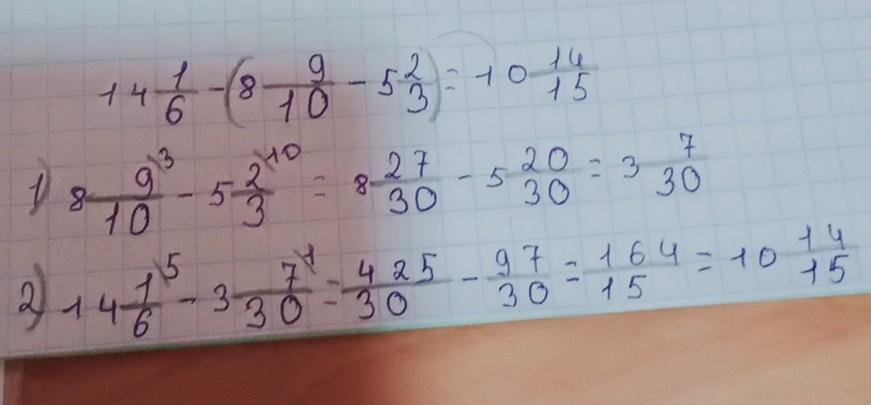 14 1/6 - (8 9/10 - 5 2/3) = 10 14/15
1) 8 9/10 \3 - 5 2/3 \10 = 8 27/30 - 5 20/30 = 3 7/30
2) 14 1/6 \5 - 3 7/30 \1 = 425/30 - 97/30 = 164/15 = 10 14/15